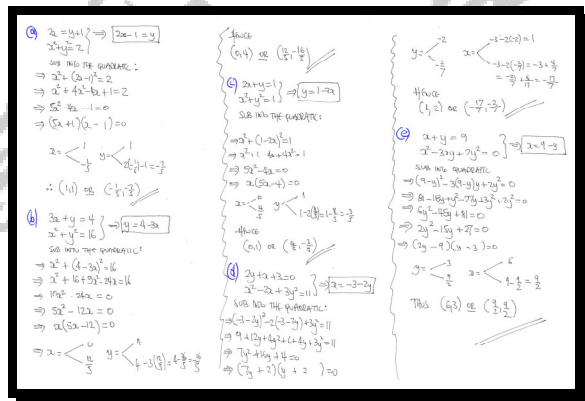 (a) 2x = y+1 } ⇒ 2x-1 = y
x²+y² = 2
SUB INTO THE QUADRATIC:
⇒ x²+(2x-1)² = 2
⇒ x²+4x²-4x+1=2
⇒ 5x²-4x-1=0
⇒ (5x+1)(x-1)=0
x = < 1, -1/5 y = < 1, 2(-1/5)-1=-7/5
∴ (1,1) OR (-1/5,-7/5)
(b) 3x+y = 4 } ⇒ y = 4-3x
x²+y² = 16
SUB INTO THE QUADRATIC:
⇒ x²+(4-3x)² = 16
⇒ x²+16+9x²-24x=16
⇒ 10x²-24x=0
⇒ 5x²-12x=0
⇒ x(5x-12)=0
⇒ x = < 0, 12/5 y = < 4, 4-3(12/5)=4-36/5=-16/5
HENCE
(0,4) OR (12/5,-16/5)
(c) 2x+y=1 } ⇒ y=1-2x
x²+y²=1
SUB INTO THE QUADRATIC:
⇒ x²+(1-2x)²=1
⇒ x²+1-4x+4x²=1
⇒ 5x²-4x=0
⇒ x(5x-4)=0
x = < 0, 4/5 y = < 1, 1-2(4/5)=1-8/5=-3/5
HENCE
(0,1) OR (4/5,-3/5)
(d) 2y+x+3=0 } ⇒ x=-3-2y
x²-2x+3y²=11
SUB INTO THE QUADRATIC:
⇒ (-3-2y)²-2(-3-2y)+3y²=11
⇒ 9+12y+4y²+6+4y+3y²=11
⇒ 7y²+16y+4=0
⇒ (7y+2)(y+2)=0
y = < -2, -2/7 x = < -3-2(-2)=1, -3-2(-2/7)=-3+4/7
=-21/7+4/7=-17/7
HENCE
(1,-2) OR (-17/7,-2/7)
(e) x+y=9 } ⇒ x=9-y
x²-3xy+2y²=0
SUB INTO QUADRATIC
⇒ (9-y)²-3(9-y)y+2y²=0
⇒ 81-18y+y²-27y+3y²+2y²=0
⇒ 6y²-45y+81=0
⇒ 2y²-15y+27=0
⇒ (2y-9)(y-3)=0
y = < 3, 9/2 x = < 6, 9-9/2=9/2
THUS (6,3) OR (9/2,9/2)